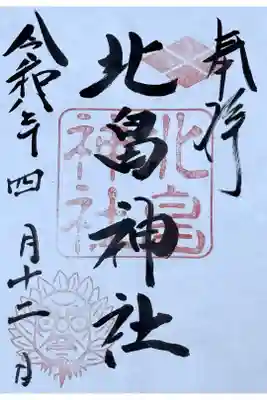 奉拝
北畠神社
北畠神社
令和八年四月十二日